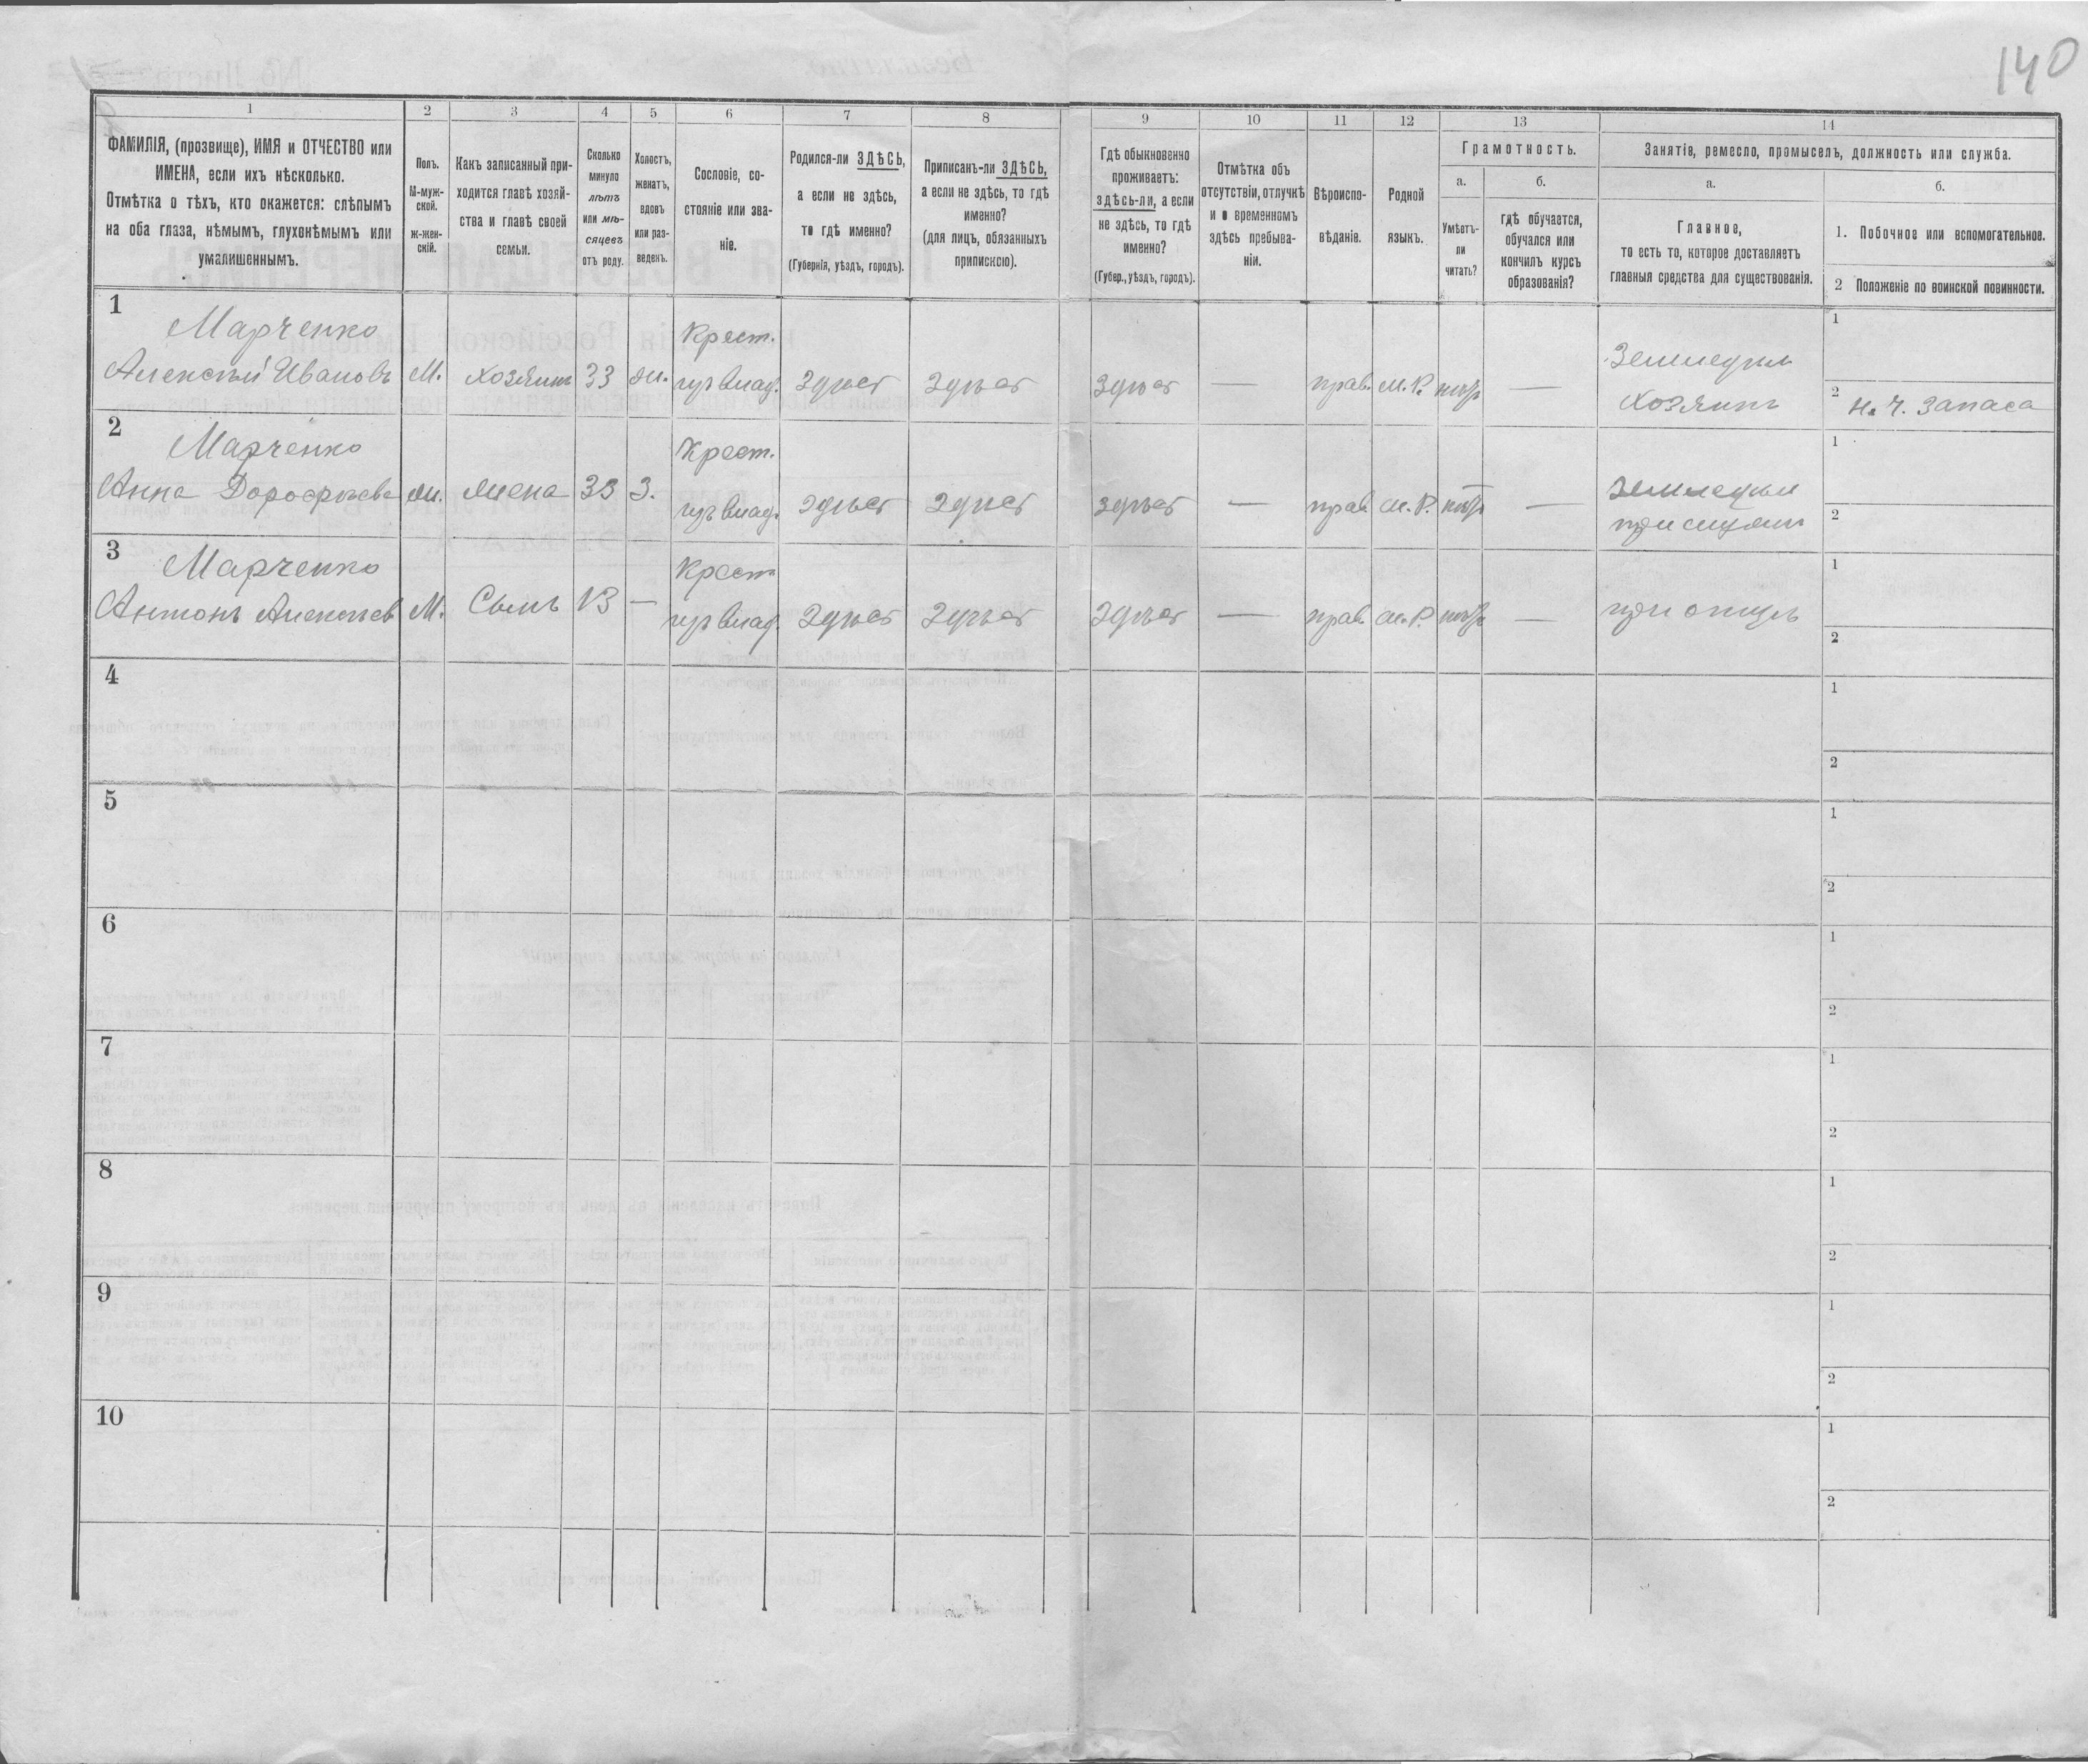 140
1 2 3 4 5 6 7 8 9 10 11 12 13 14
ФАМИЛІЯ, (прозвище), ИМЯ и ОТЧЕСТВО или
ИМЕНА, если ихъ нѣсколько.
Отмѣтка о тѣхъ, кто окажется: слѣпымъ
на оба глаза, нѣмымъ, глухонѣмымъ или
умалишеннымъ.
Полъ.
М-муж-
ской.
ж-жен-
скій.
Какъ записанный при-
ходится главѣ хозяй-
ства и главѣ своей
семьи.
Сколько
минуло
лѣтъ
или мѣ-
сяцевъ
отъ роду.
Холостъ,
женатъ,
вдовъ
или раз-
веденъ.
Сословіе, со-
стояніе или зва-
ніе.
Родился-ли ЗДѢСЬ,
а если не здѣсь,
то гдѣ именно?
(Губернія, уѣздъ, городъ).
Приписанъ-ли ЗДѢСЬ,
а если не здѣсь, то гдѣ
именно?
(для лицъ, обязанныхъ
припискою).
Гдѣ обыкновенно
проживаетъ:
ЗДѢСЬ-ЛИ, а если
не здѣсь, то гдѣ
именно?
(Губер., уѣздъ, городъ).
Отмѣтка объ
отсутствіи, отлучкѣ
и о временномъ
здѣсь пребыва-
ніи.
Вѣроиспо-
вѣданіе.
Родной
языкъ.
Грамотность.
а.
Умѣетъ-
ли
читать?
б.
гдѣ обучается,
обучался или
кончилъ курсъ
образованія?
Занятіе, ремесло, промыселъ, должность или служба.
а.
Главное,
то есть то, которое доставляетъ
главныя средства для существованія.
б.
1. Побочное или вспомогательное.
2 Положеніе по воинской повинности.
1
Марченко Крест. Земледѣл 1
Алексѣй Ивановъ М. хозяинъ 33 ж. изъ влад. Здѣсь Здѣсь Здѣсь — прав. М. Р. нѣтъ — хозяинъ 2 н. ч. запаса
2
Марченко Крест. 1
Анна Дорофѣева ж. жена 33 З. изъ влад. Здѣсь Здѣсь Здѣсь — прав. М. Р. нѣтъ — Земледѣл 2
3
Марченко Крест. 1
Антонъ Алексѣев М. Сынъ 13 — изъ влад. Здѣсь Здѣсь Здѣсь — прав. М. Р. нѣтъ — при отцѣ 2
4 1
2
5 1
2
6 1
2
7 1
2
8 1
2
9 1
2
10 1
2